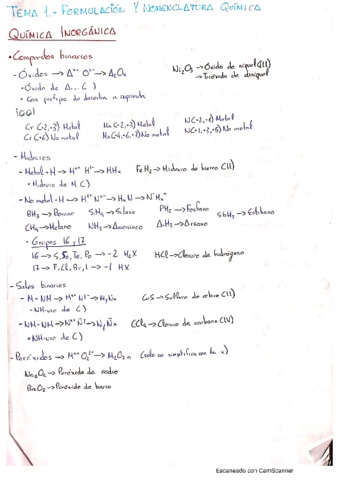 TEMA 1.- FORMULACIÓN Y NOMENCLATURA QUÍMICA
QUÍMICA INORGÁNICA
• Compuestos binarios
- Óxidos → Aⁿ⁺ O²⁻ → A₂Oₙ
Ni₂O₃ → Óxido de níquel (III)
→ Trióxido de diníquel
• Óxido de A... ( )
• Con prefijos de derecha a izquierda
¡OJO!
Cr (+2,+3) Metal
Cr (+6) No metal
Mn (+2,+3) Metal
Mn (+4,+6,+7) No metal
N (+2,+4) Metal
N (+1,+3,+5) No metal
- Hidruros
- Metal + H → Mⁿ⁺ H¹⁻ → MHₙ
FeH₂ → Hidruro de hierro (II)
• Hidruro de M ( )
- No metal + H → H¹⁺ Nⁿ⁻ → HₙN → NHₙ
BH₃ → Borano
SiH₄ → Silano
PH₃ → Fosfano
SbH₃ → Estibano
CH₄ → Metano
NH₃ → Amoniaco
AsH₃ → Arsano
- Grupos 16 y 17
16 → S, Se, Te, Po → -2 H₂X
HCl → Cloruro de hidrógeno
17 → F, Cl, Br, I → -1 HX
- Sales binarias
- M-NM → Mⁿ⁺ Nˣ⁻ → MₓNₙ
CuS → Sulfuro de cobre (II)
• NM-uro de ( )
- NM-NM → Nⁿ⁺ Ñˣ⁻ → NₓÑₙ
CCl₄ → Cloruro de carbono (IV)
• NM-uro de ( )
- Peróxidos → Mⁿ⁺ O₂²⁻ → M₂O₂·ₙ (solo se simplifica con la n)
Na₂O₂ → Peróxido de sodio
BaO₂ → Peróxido de bario
Escaneado con CamScanner